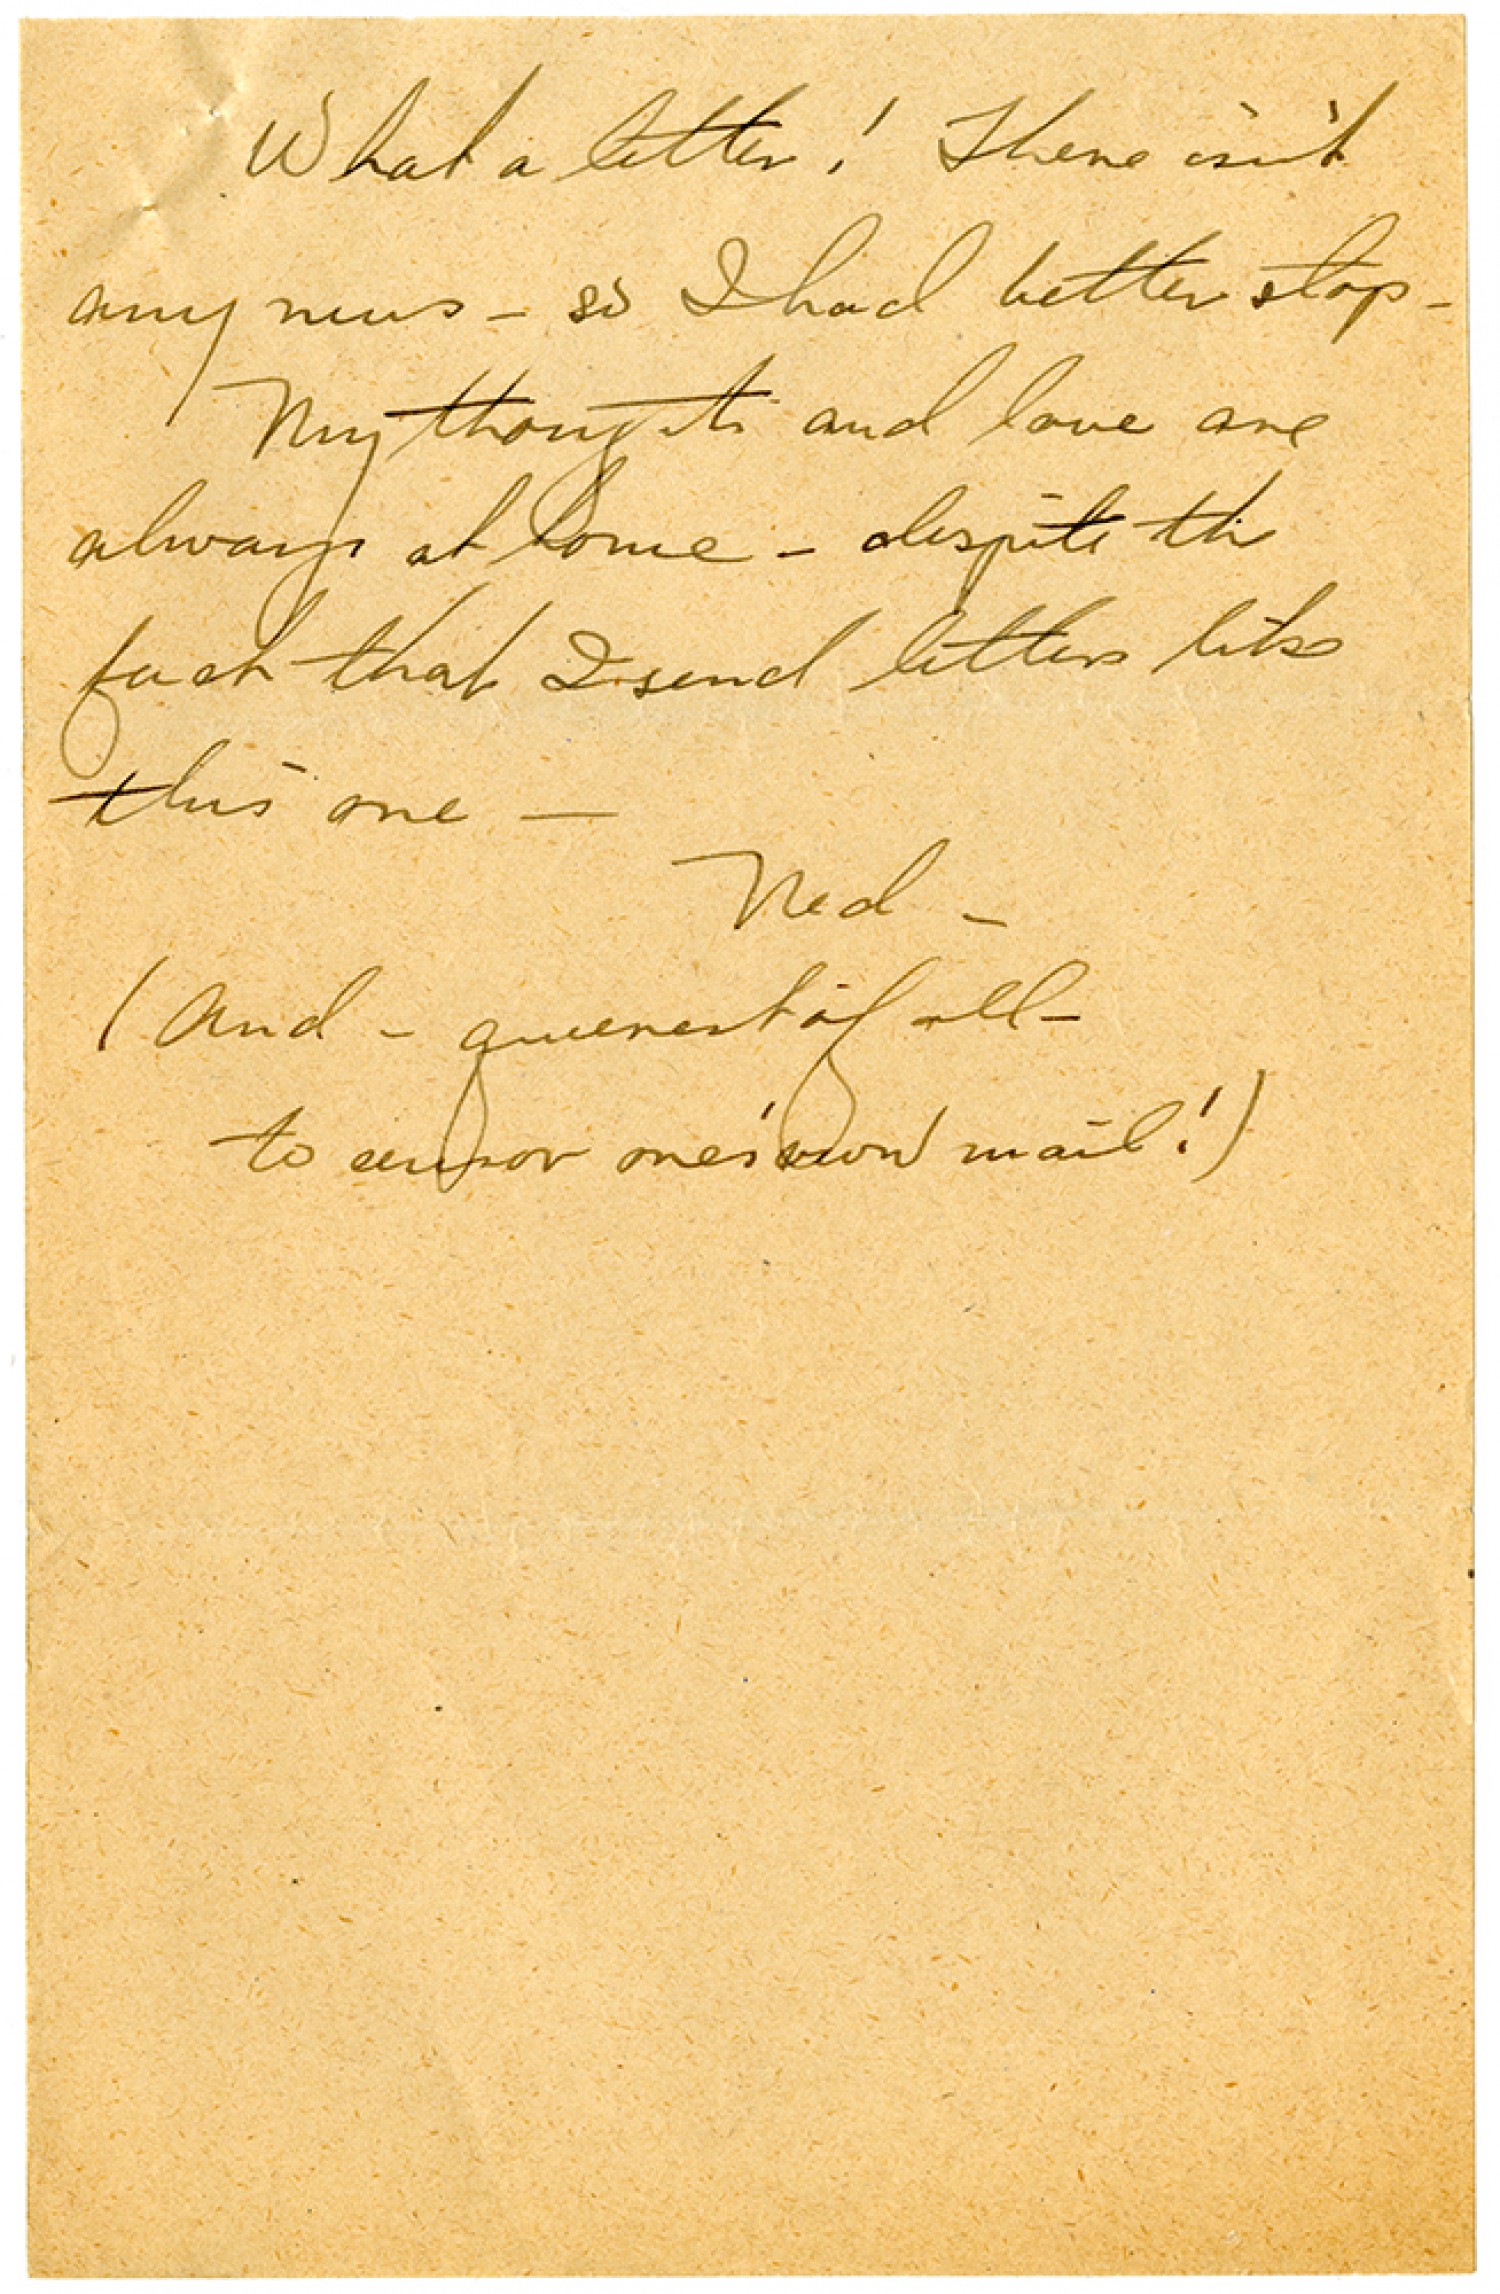 What a letter! There isn't
any news - so I had better stop -
My thoughts and love are
always at home - despite the
fact that I send letters like
this one -
Ned -
(And - queerest of all -
to censor one's own mail!)